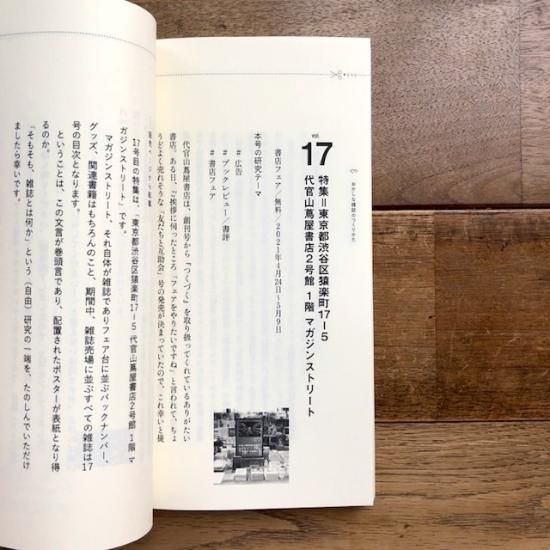 vol.
17
特集＝東京都渋谷区猿楽町17-5
代官山蔦屋書店2号館 1階 マガジンストリート
書店フェア／無料／2021年4月24日～5月9日
本号の研究テーマ
＃広告
＃ブックレビュー／書評
＃書店フェア
代官山蔦屋書店は、創刊号から「つくづく」を取り扱ってくれているありがたい
書店。ある日、ご挨拶に伺ったところ「フェアをやりたいですね」と言われて、ちょ
うどよく売れそうな「友だちと互助会」号の発売が決まっていたので、これ幸いと提
17号目の特集は、「東京都渋谷区猿楽町17-5 代官山蔦屋書店2号館 1階 マ
ガジンストリート」です。
マガジンストリート、それ自体が雑誌でありフェア台に並ぶバックナンバー、
グッズ、関連書籍はもちろんのこと、期間中、雑誌売場に並ぶすべての雑誌は17
号の目次となります。
ということは、この文言が巻頭言であり、配置されたポスターが表紙となり得
るのか。
「そもそも、雑誌とは何か」という（自由）研究の一端を、たのしんでいただけ
ましたら幸いです。